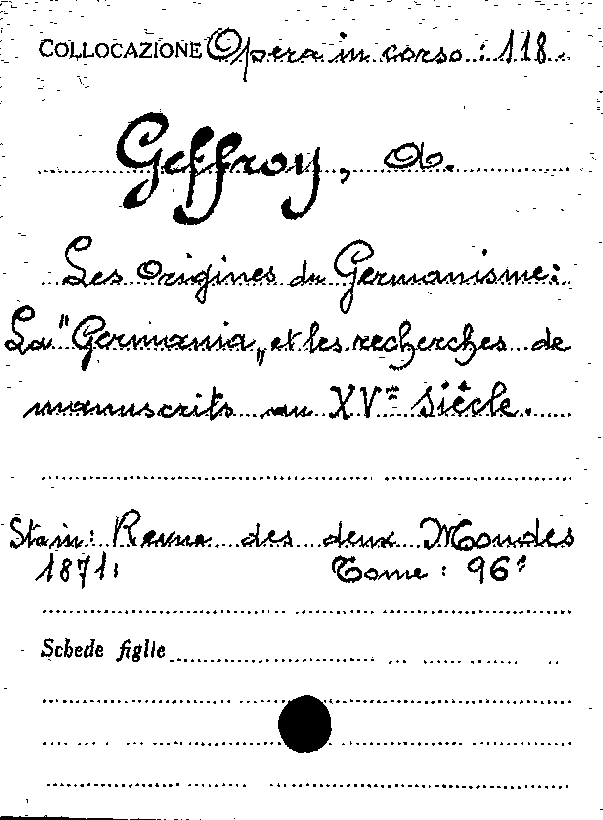 COLLOCAZIONE Opera in corso : 118.
Geffroy, A.
Les Origines du Germanisme:
La "Germania„ et les recherches de
manuscrits au XVme Siècle.
Sta in: Revue des deux Mondes
1871: Tome : 96º
Schede figlie